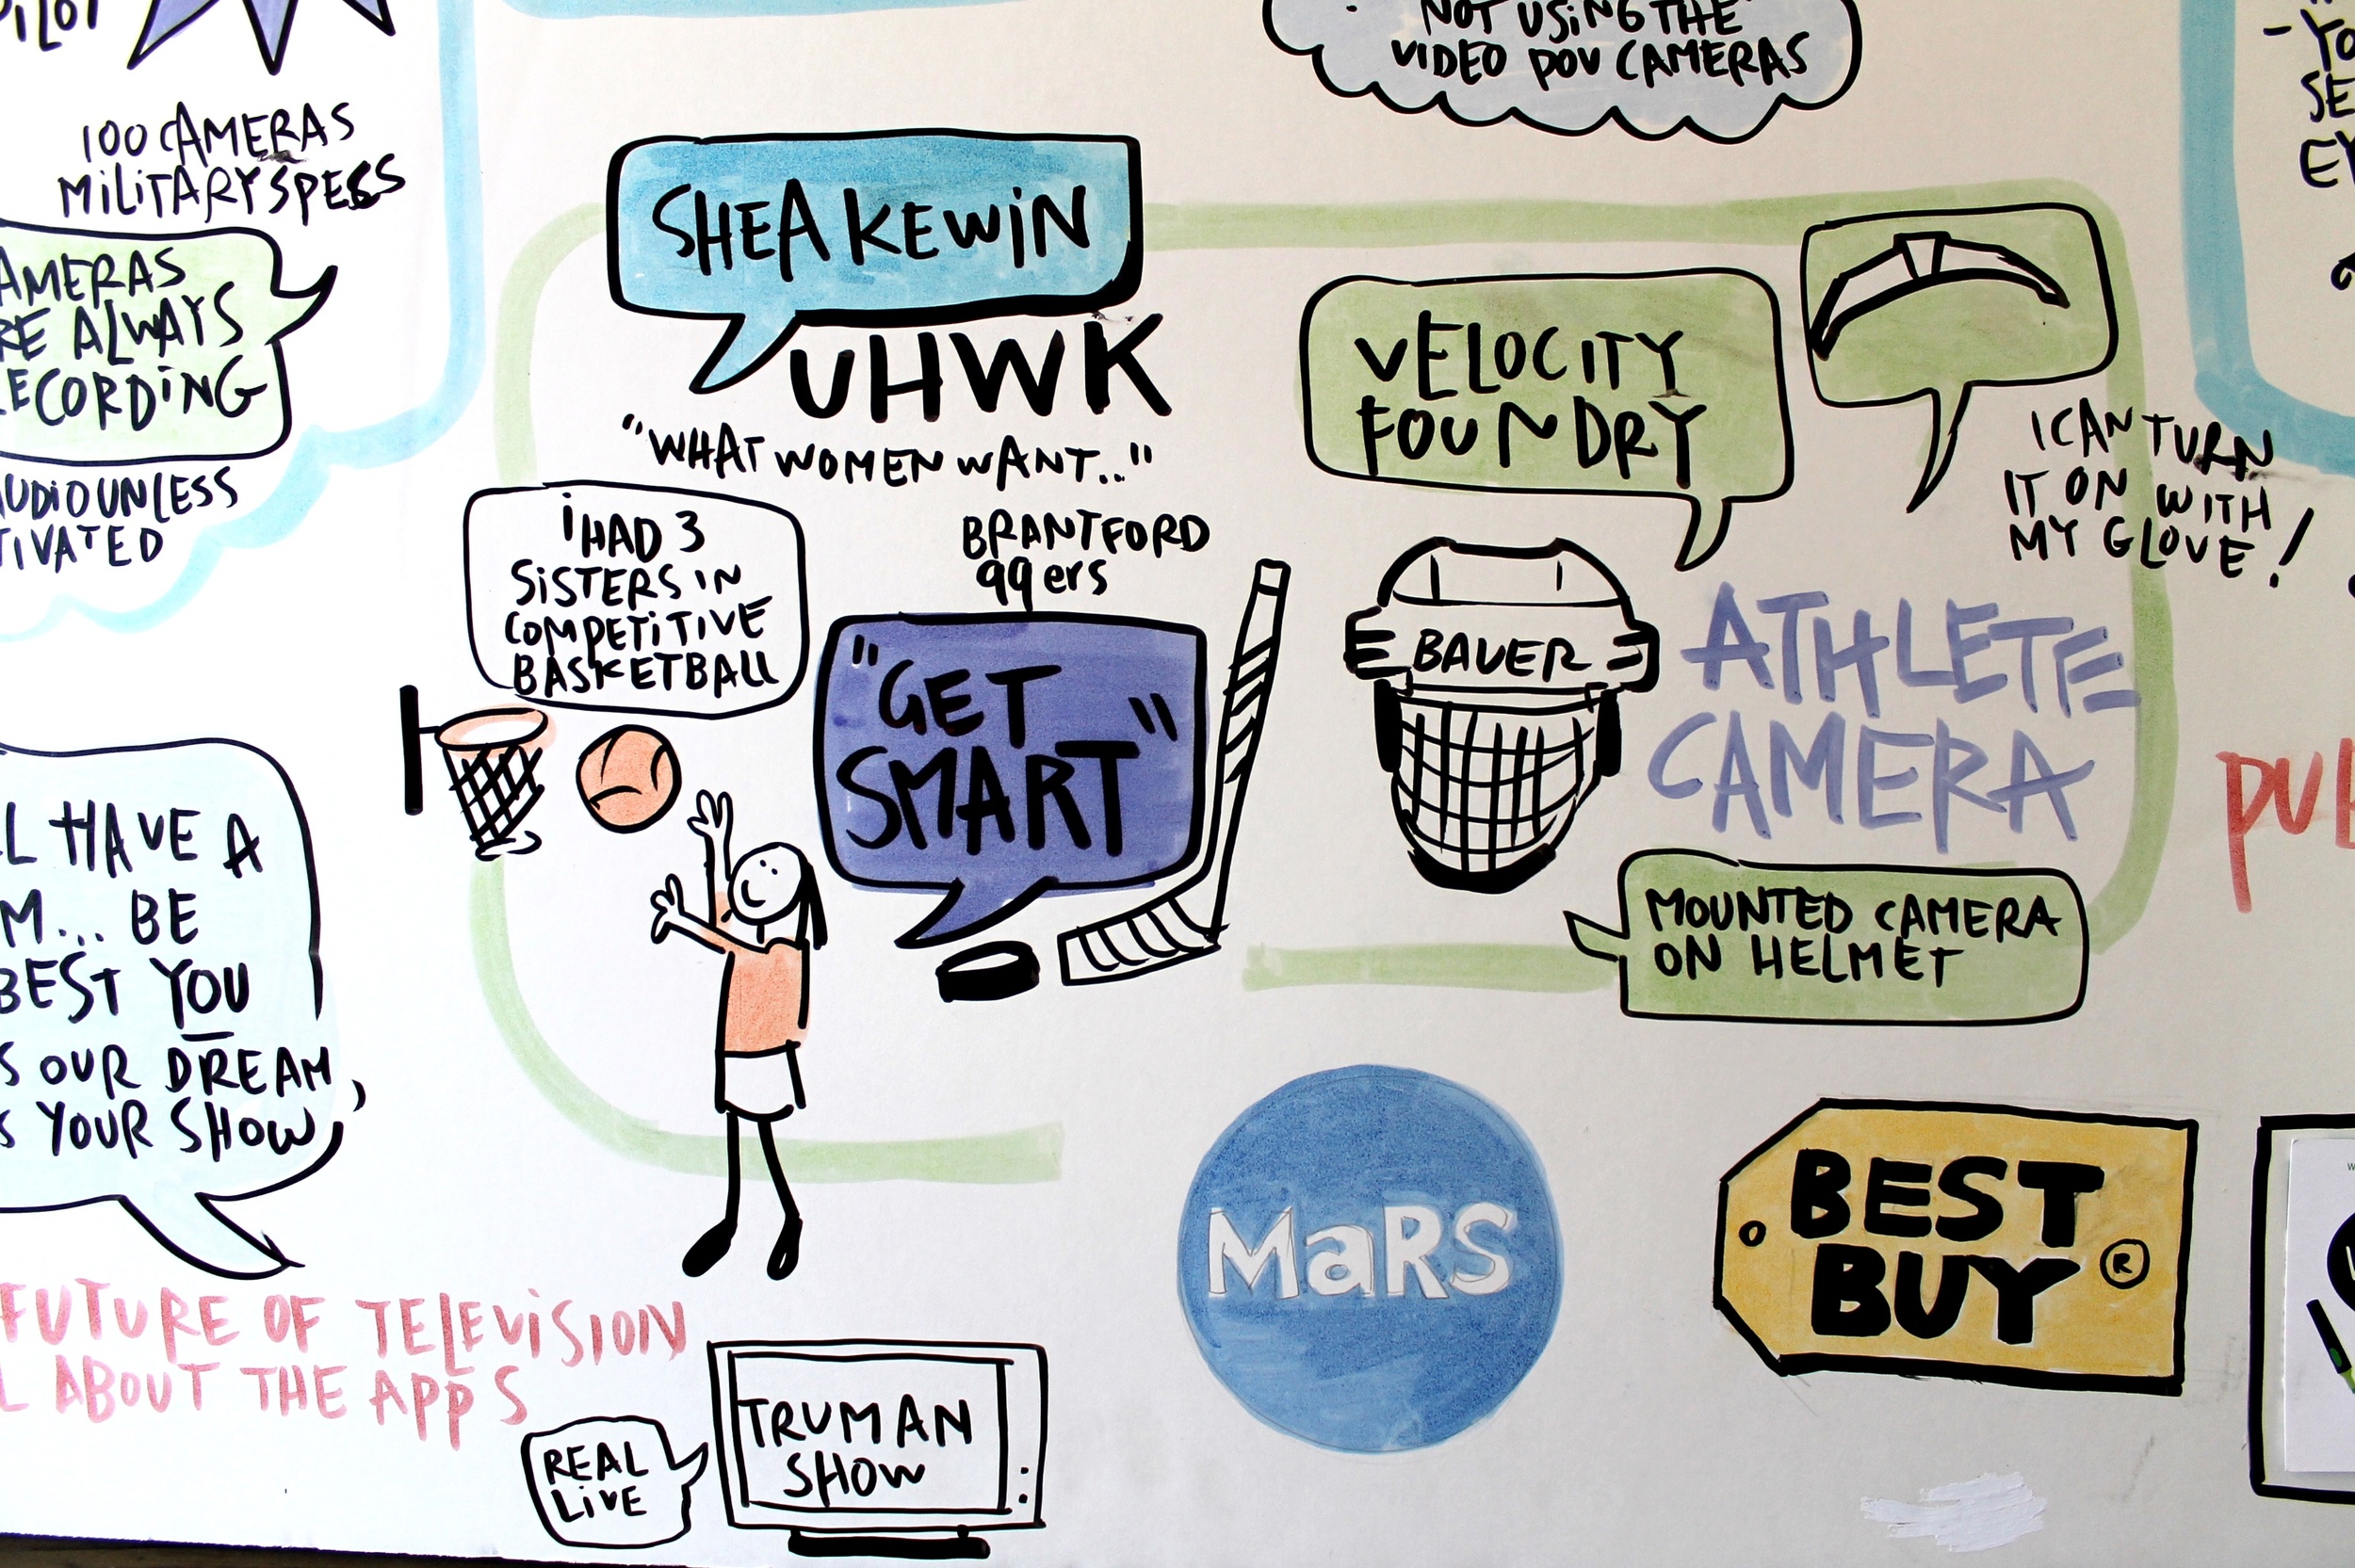 100 CAMERAS
MILITARY SPECS
ALWAYS
AUDIO UNLESS
HAVE A
BE
BEST YOU
OUR DREAM,
YOUR SHOW
FUTURE OF TELEVISION
ABOUT THE APPS
REAL
LIVE
TRUMAN
SHOW
SHEA KEWIN
UHWK
"WHAT WOMEN WANT.."
I HAD 3
SISTERS IN
COMPETITIVE
BASKETBALL
BRANTFORD
99ers
"GET
SMART"
NOT USING THE
VIDEO POV CAMERAS
VELOCITY
FOUNDRY
I CAN TURN
IT ON WITH
MY GLOVE!
BAUER
ATHLETE
CAMERA
MOUNTED CAMERA
ON HELMET
MaRS
BEST
BUY ®